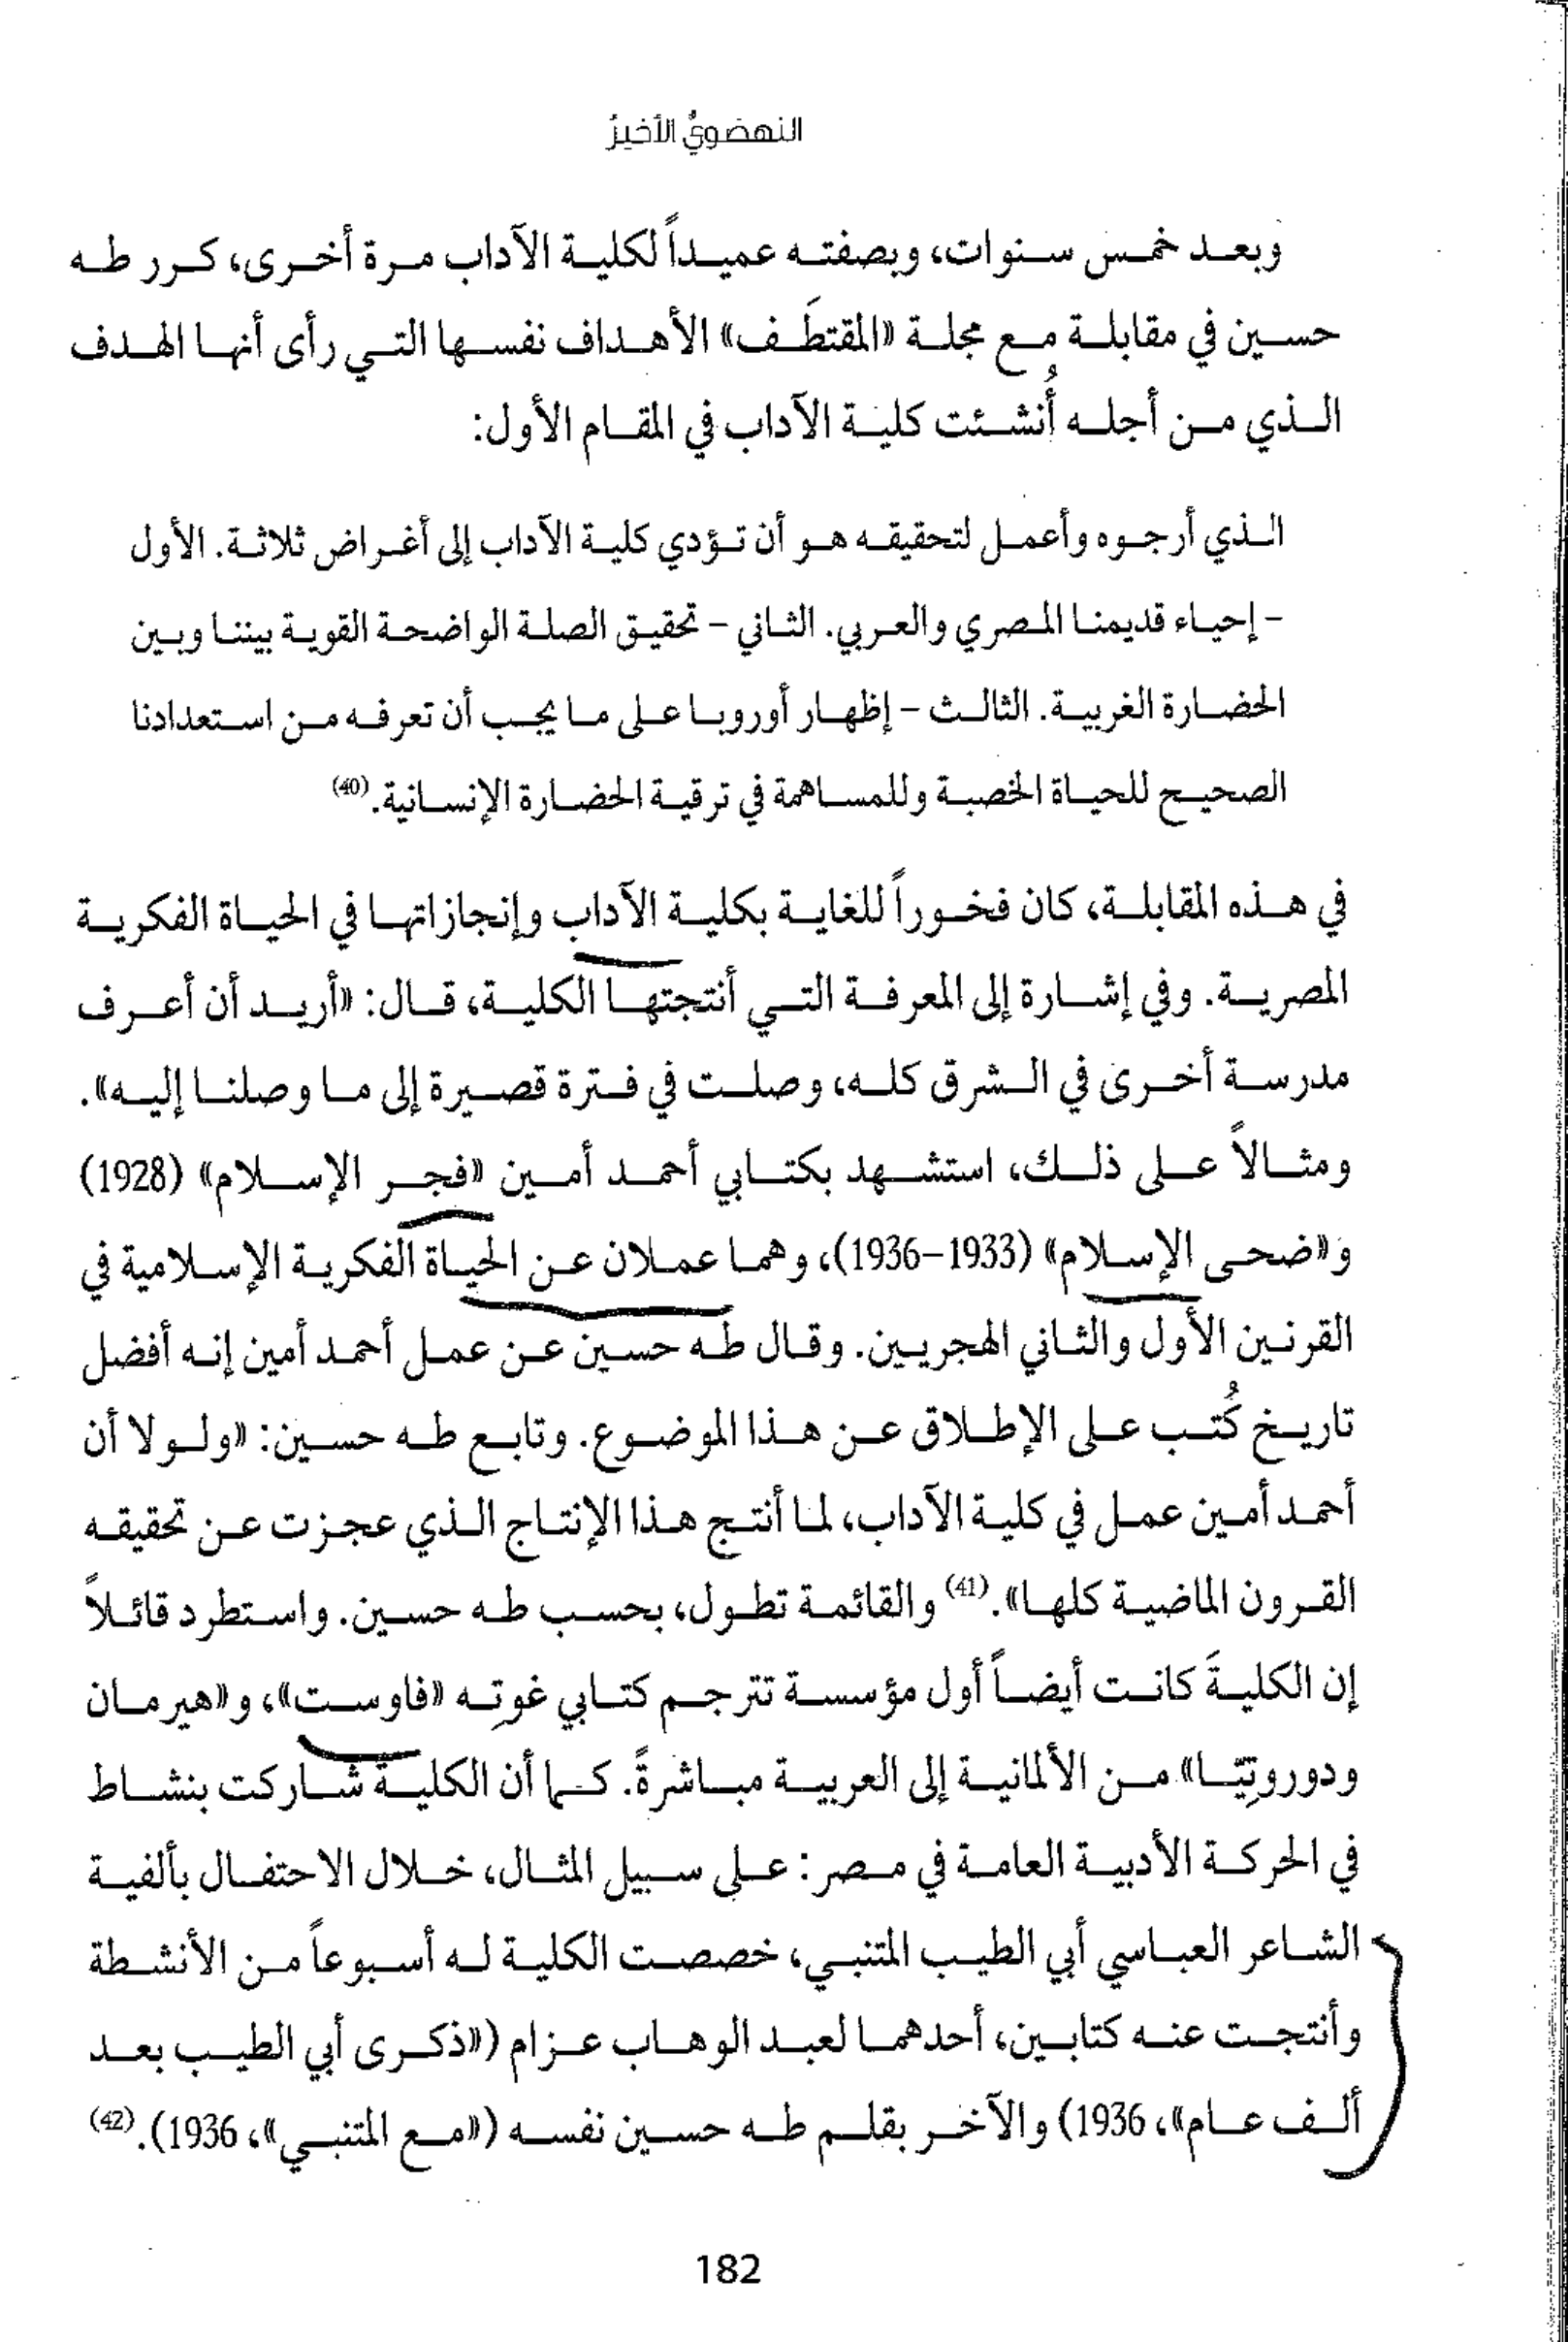 النهضويُّ الأخيرُ
وبعد خمس سنوات، وبصفته عميداً لكلية الآداب مرة أخرى، كرر طه
حسين في مقابلة مع مجلة «المقتطَف» الأهداف نفسها التي رأى أنها الهدف
الذي من أجله أُنشئت كلية الآداب في المقام الأول:
الذي أرجوه وأعمل لتحقيقه هو أن تؤدي كلية الآداب إلى أغراض ثلاثة. الأول
– إحياء قديمنا المصري والعربي. الثاني – تحقيق الصلة الواضحة القوية بيننا وبين
الحضارة الغربية. الثالث – إظهار أوروبا على ما يجب أن تعرفه من استعدادنا
الصحيح للحياة الخصبة وللمساهمة في ترقية الحضارة الإنسانية.(40)
في هذه المقابلة، كان فخوراً للغاية بكلية الآداب وإنجازاتها في الحياة الفكرية
المصرية. وفي إشارة إلى المعرفة التي أنتجتها الكلية، قال: «أريد أن أعرف
مدرسة أخرى في الشرق كله، وصلت في فترة قصيرة إلى ما وصلنا إليه».
ومثالاً على ذلك، استشهد بكتابي أحمد أمين «فجر الإسلام» (1928)
و«ضحى الإسلام» (1933–1936)، وهما عملان عن الحياة الفكرية الإسلامية في
القرنين الأول والثاني الهجريين. وقال طه حسين عن عمل أحمد أمين إنه أفضل
تاريخ كُتب على الإطلاق عن هذا الموضوع. وتابع طه حسين: «ولولا أن
أحمد أمين عمل في كلية الآداب، لما أنتج هذا الإنتاج الذي عجزت عن تحقيقه
القرون الماضية كلها».(41) والقائمة تطول، بحسب طه حسين. واستطرد قائلاً
إن الكليةَ كانت أيضاً أول مؤسسة تترجم كتابي غوتِه «فاوست»، و«هيرمان
ودوروتِيّا» من الألمانية إلى العربية مباشرةً. كما أن الكلية شاركت بنشاط
في الحركة الأدبية العامة في مصر: على سبيل المثال، خلال الاحتفال بألفية
الشاعر العباسي أبي الطيب المتنبي، خصصت الكلية له أسبوعاً من الأنشطة
وأنتجت عنه كتابين، أحدهما لعبد الوهاب عزام («ذكرى أبي الطيب بعد
ألف عام»، 1936) والآخر بقلم طه حسين نفسه («مع المتنبي»، 1936).(42)
182